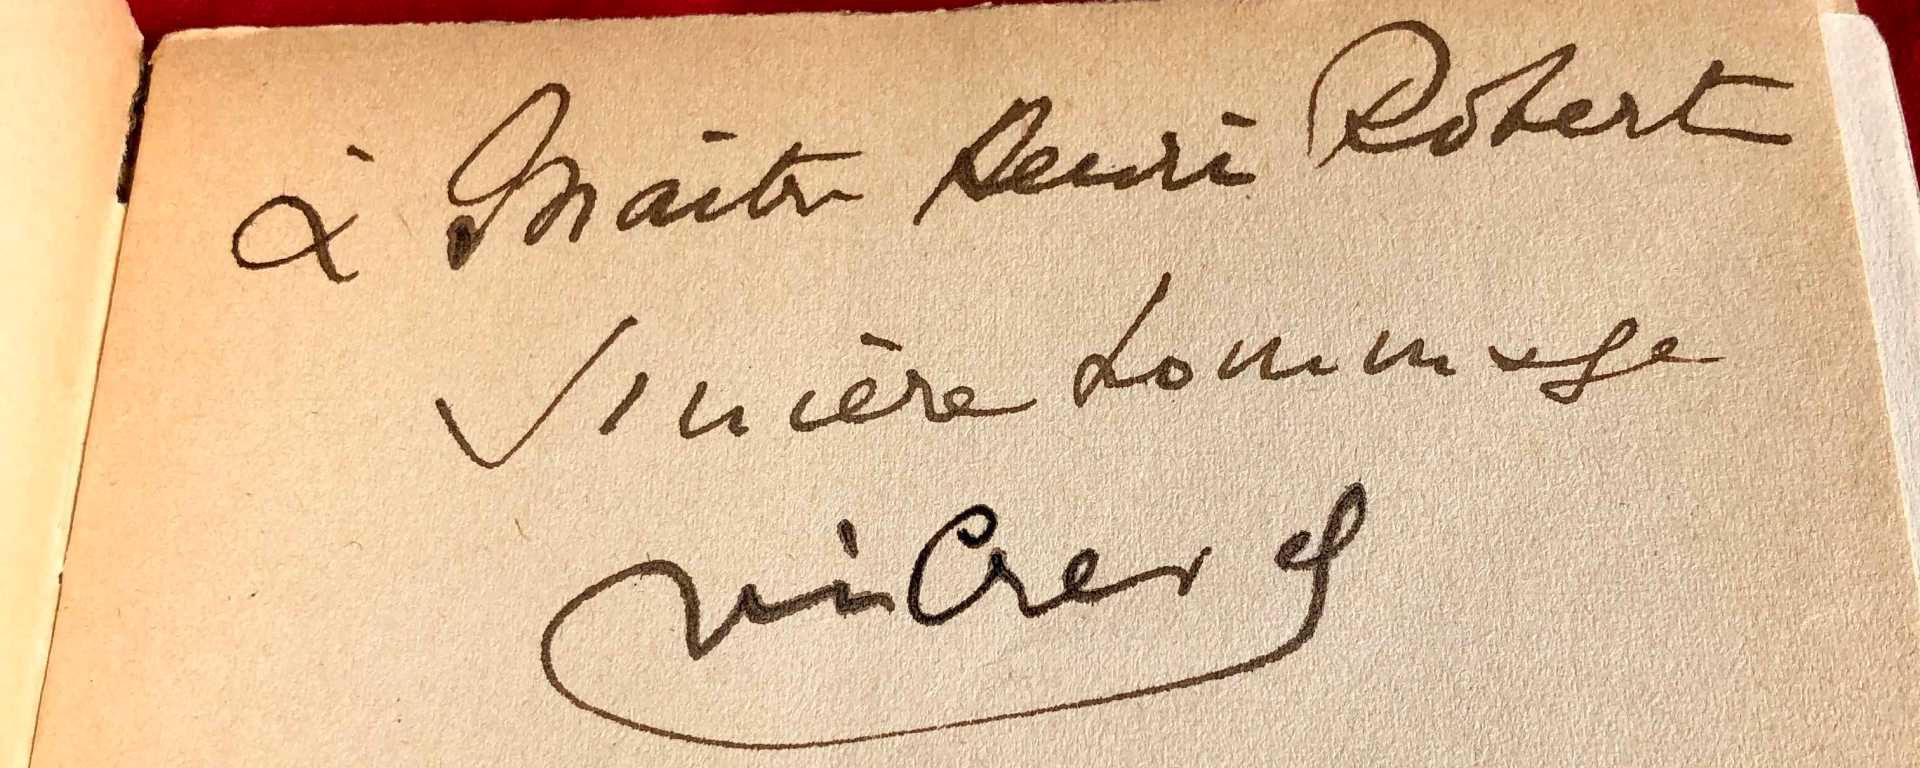 à Maître Henri Robert
Sincère hommage